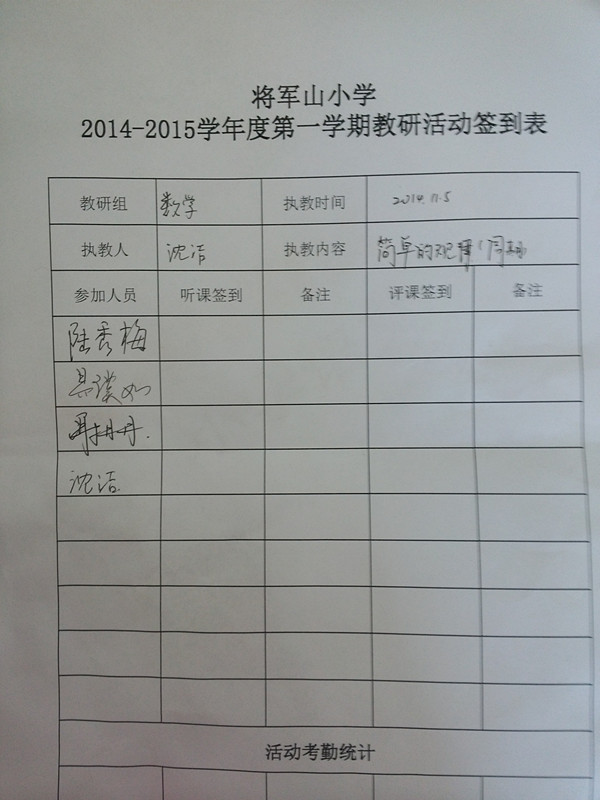 将军山小学
2014-2015学年度第一学期教研活动签到表
教研组 数学 执教时间 2014.11.5
执教人 沈洁 执教内容 简单的规律(周期
参加人员 听课签到 备注 评课签到 备注
陆秀梅
沈洁
活动考勤统计